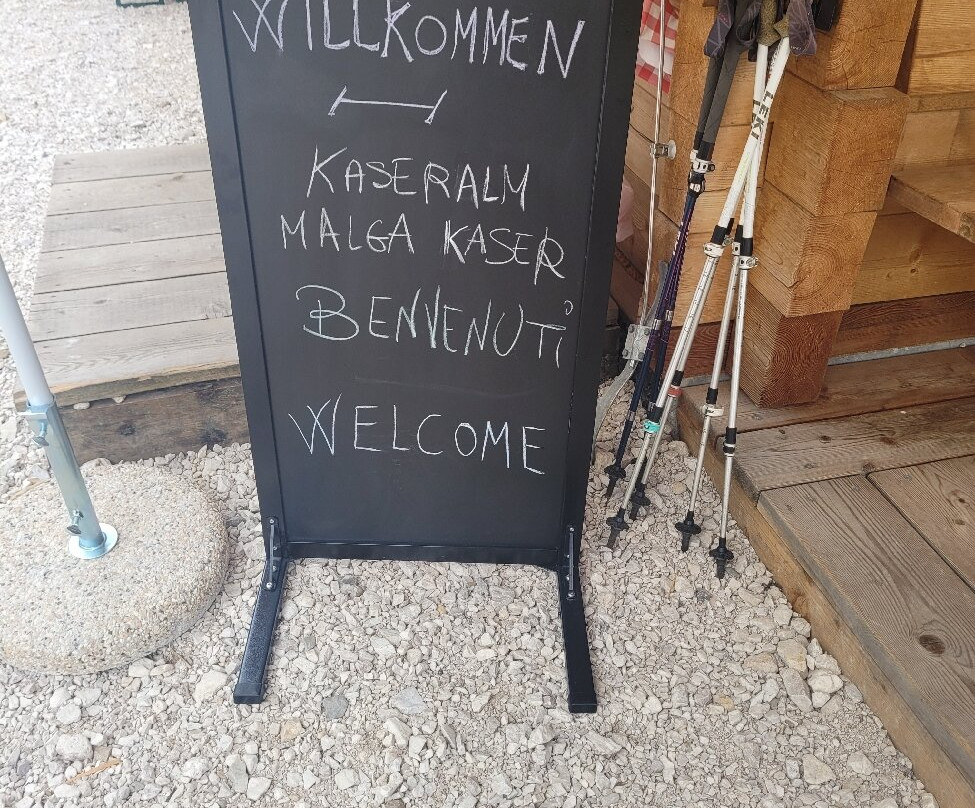 WILLKOMMEN
KASERALM
MALGA KASER
BENVENUTi
WELCOME
LEKI